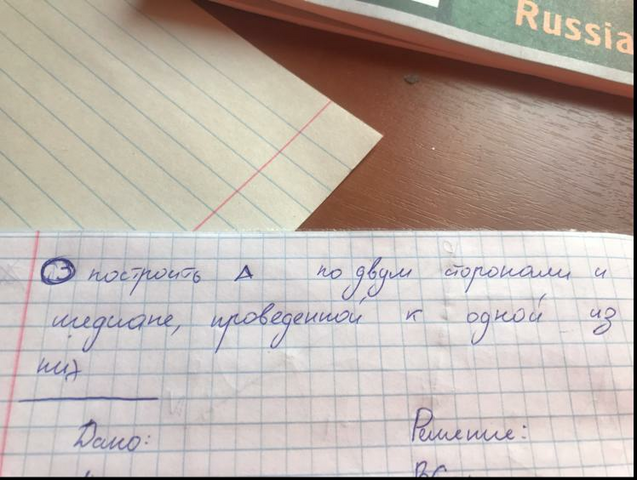 Russia
③ построить Δ по двум сторонами и
медиане, проведенной к одной из
них
Дано:
Решение: